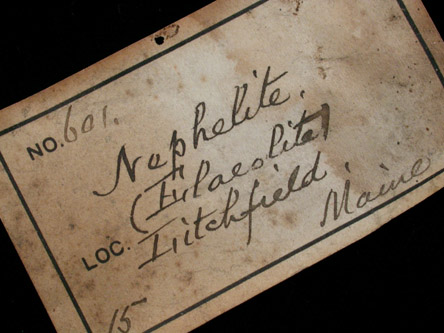 NO. 601.
Nephelite.
(Elaeolite)
LOC. Litchfield,
Maine
15